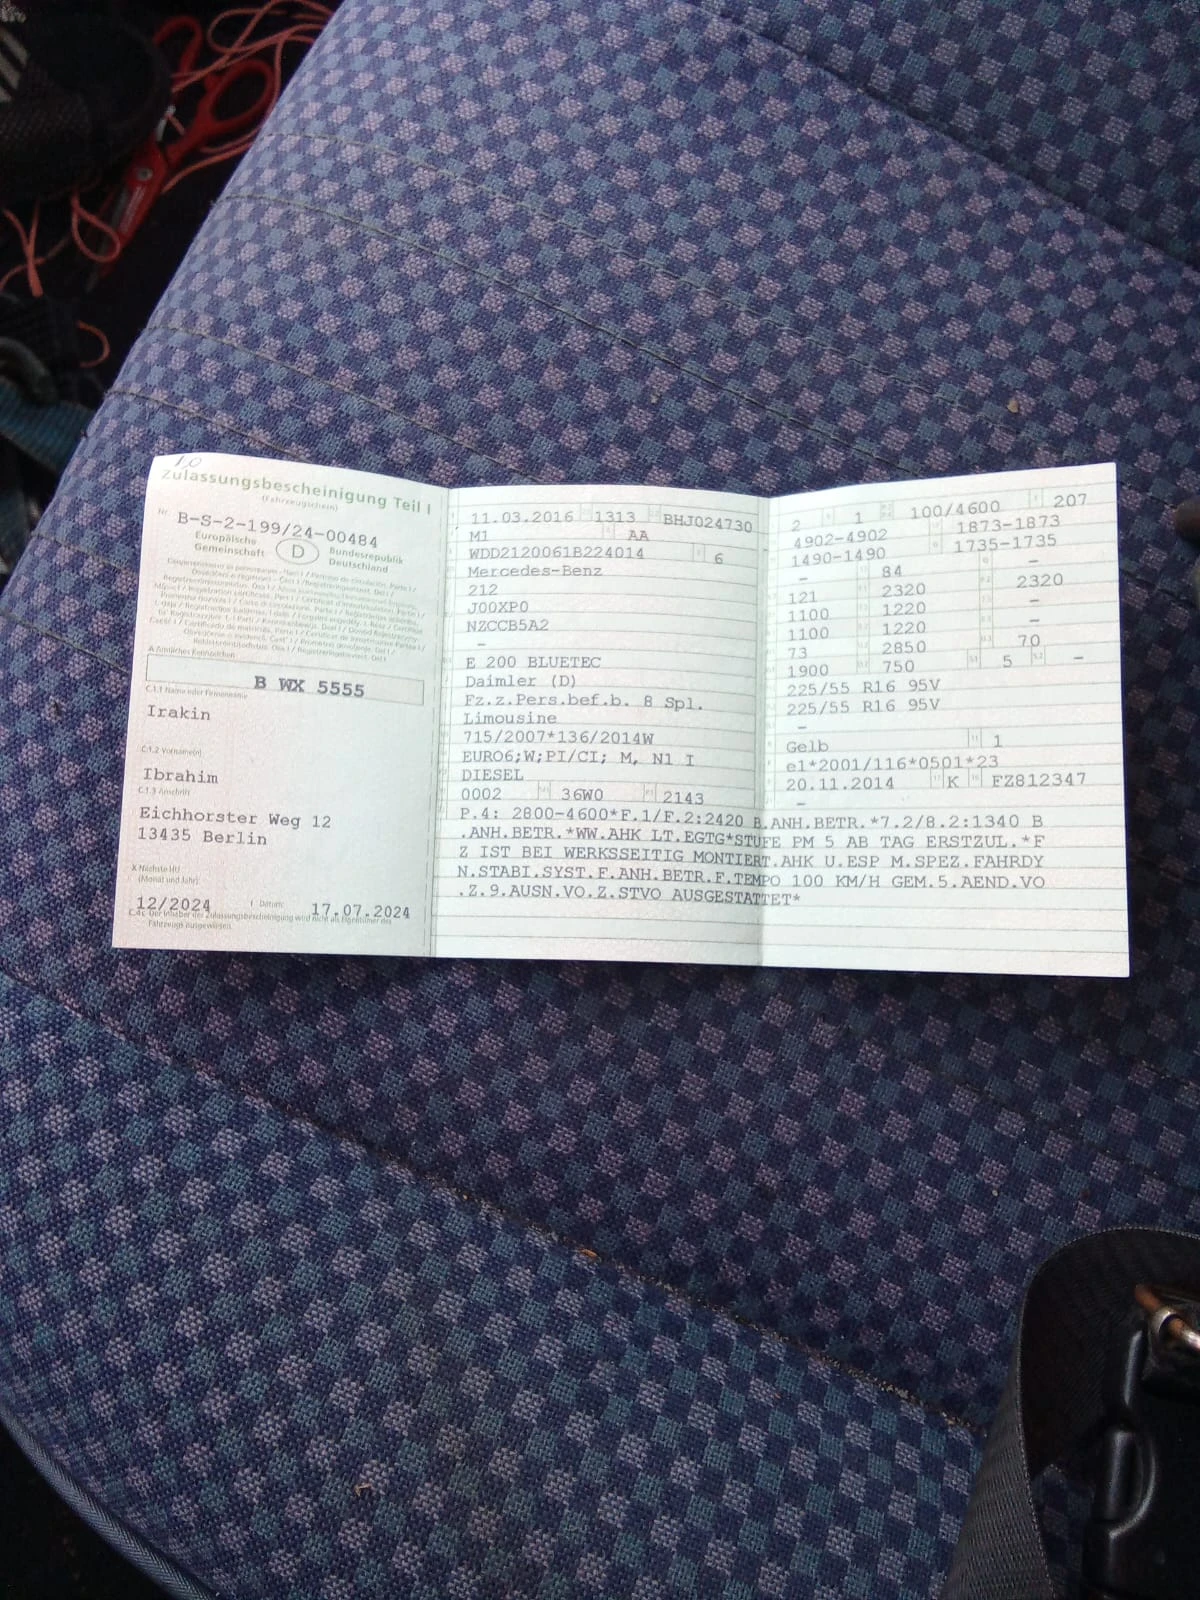 Zulassungsbescheinigung Teil I
(Fahrzeugschein)
Nr. B-S-2-199/24-00484
Europäische Gemeinschaft
D
Bundesrepublik Deutschland
A Amtliches Kennzeichen
B WX 5555
C.1.1 Name oder Firmenname
Irakin
C.1.2 Vorname(n)
Ibrahim
C.1.3 Anschrift
Eichhorster Weg 12
13435 Berlin
X Nächste HU
(Monat und Jahr)
12/2024
I Datum:
17.07.2024
C.4c Der Inhaber der Zulassungsbescheinigung wird nicht als Eigentümer des
Fahrzeugs ausgewiesen.
11.03.2016 1313 BHJ024730
M1 AA
WDD2120061B224014 6
Mercedes-Benz
212
J00XP0
NZCCB5A2
–
E 200 BLUETEC
Daimler (D)
Fz.z.Pers.bef.b. 8 Spl.
Limousine
715/2007*136/2014W
EURO6;W;PI/CI; M, N1 I
DIESEL
0002 36W0 2143
2 1 100/4600 207
4902-4902 1873-1873
1490-1490 1735-1735
– 84 –
121 2320 2320
1100 1220 –
1100 1220 –
73 2850 70
1900 750 5 –
225/55 R16 95V
225/55 R16 95V
–
Gelb 1
e1*2001/116*0501*23
20.11.2014 K FZ812347
–
P.4: 2800-4600*F.1/F.2:2420 B.ANH.BETR.*7.2/8.2:1340 B
.ANH.BETR.*WW.AHK LT.EGTG*STUFE PM 5 AB TAG ERSTZUL.*F
Z IST BEI WERKSSEITIG MONTIERT.AHK U.ESP M.SPEZ.FAHRDY
N.STABI.SYST.F.ANH.BETR.F.TEMPO 100 KM/H GEM.5.AEND.VO
.Z.9.AUSN.VO.Z.STVO AUSGESTATTET*